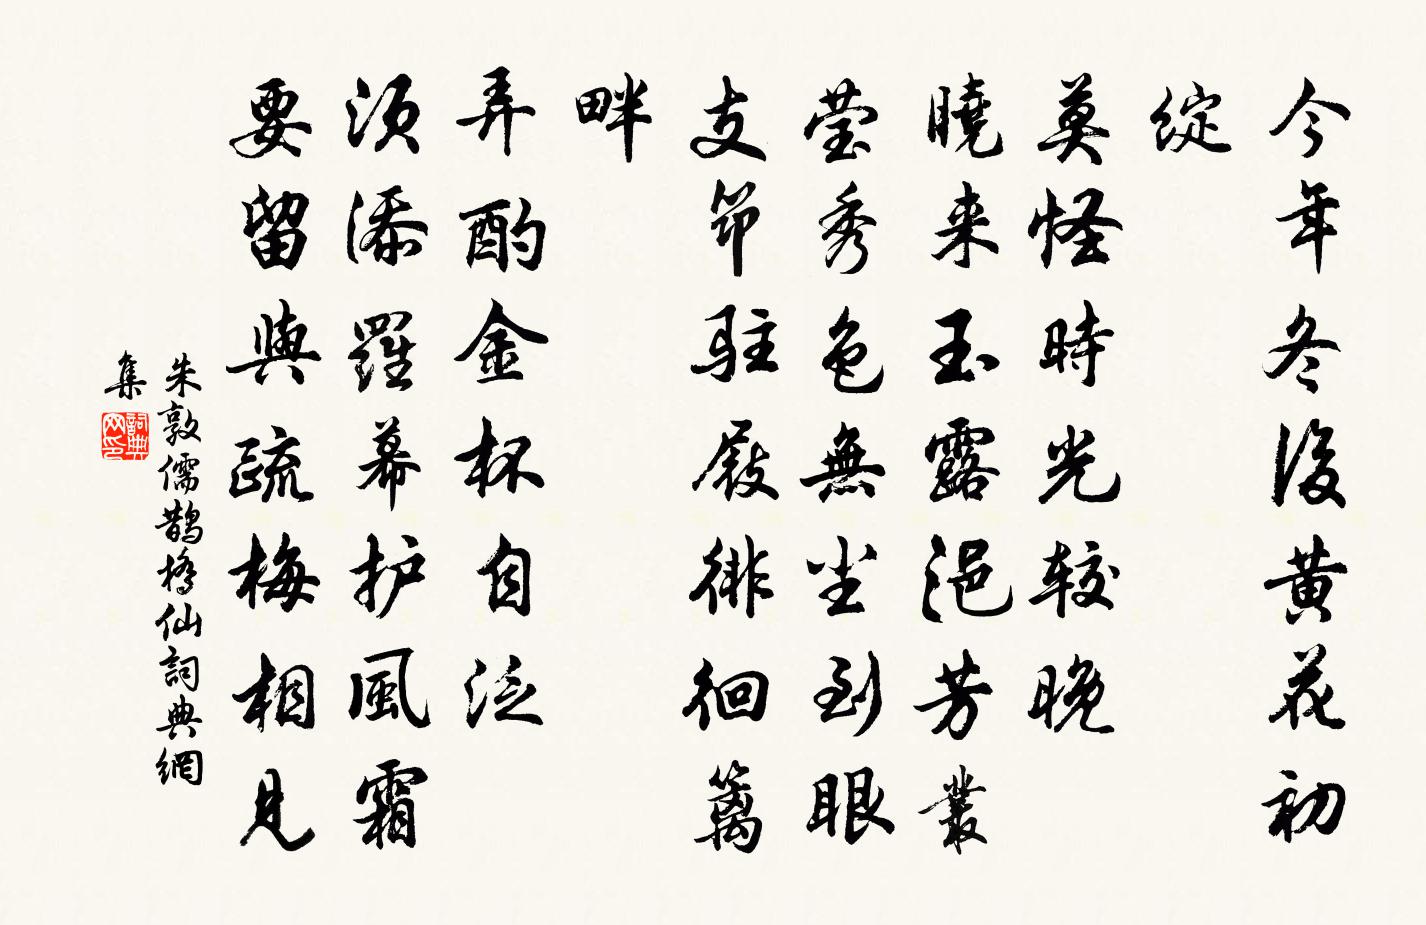 今年冬後黄花初
綻
莫怪時光较晚
曉来玉露浥芳叢
莹秀色無尘到眼
支筇駐屐徘徊籬
畔
弄酌金杯自泛
須添羅幕护風霜
要留與疏梅相見
朱敦儒鵲橋仙詞典網
集
詞典网印